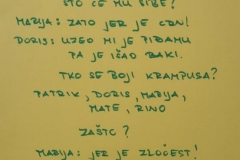 ŠTO ĆE MU ŠIBE?
MARIJA: ZATO JER JE CRNI!
DORIS: UZEO MI JE PIĐAMU
PA JE IŠAO BAKI.
TKO SE BOJI KRAMPUSA?
PATRIK, DORIS, MARIJA,
MATE, RINO
ZAŠTO?
MARIJA: JER JE ZLOČEST!